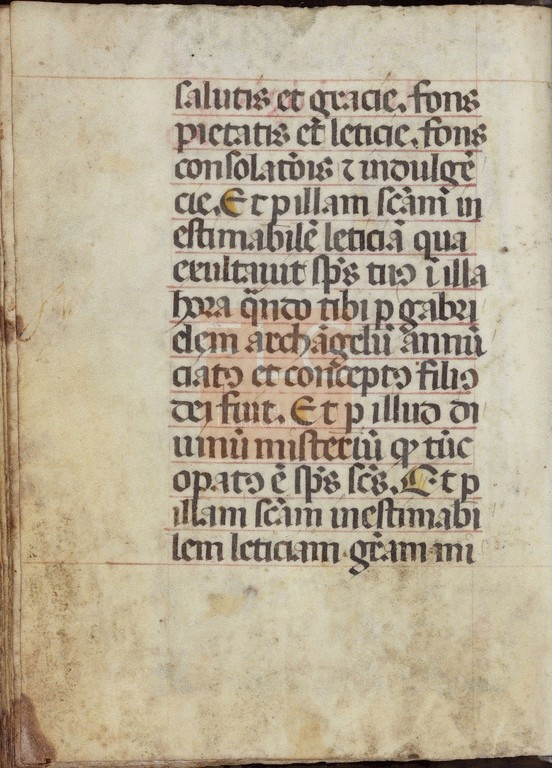 salutis et gracie. fons
pietatis et leticie. fons
consolatõis ⁊ indulgẽ
cie. Et p illam scãm in
estimabilẽ leticiã qua
exultauit sp̃s tuꝰ ĩ illa
hora qñdo tibi p gabri
elem archãgelũ annũ
ciatꝰ et conceptꝰ filiꝰ
dei fuit. Et p illud di
uinũ misteriũ qɔ tũc
opatꝰ ẽ sp̃s sc̃s. Et p
illam scãm inestimabi
lem leticiam grãm mi